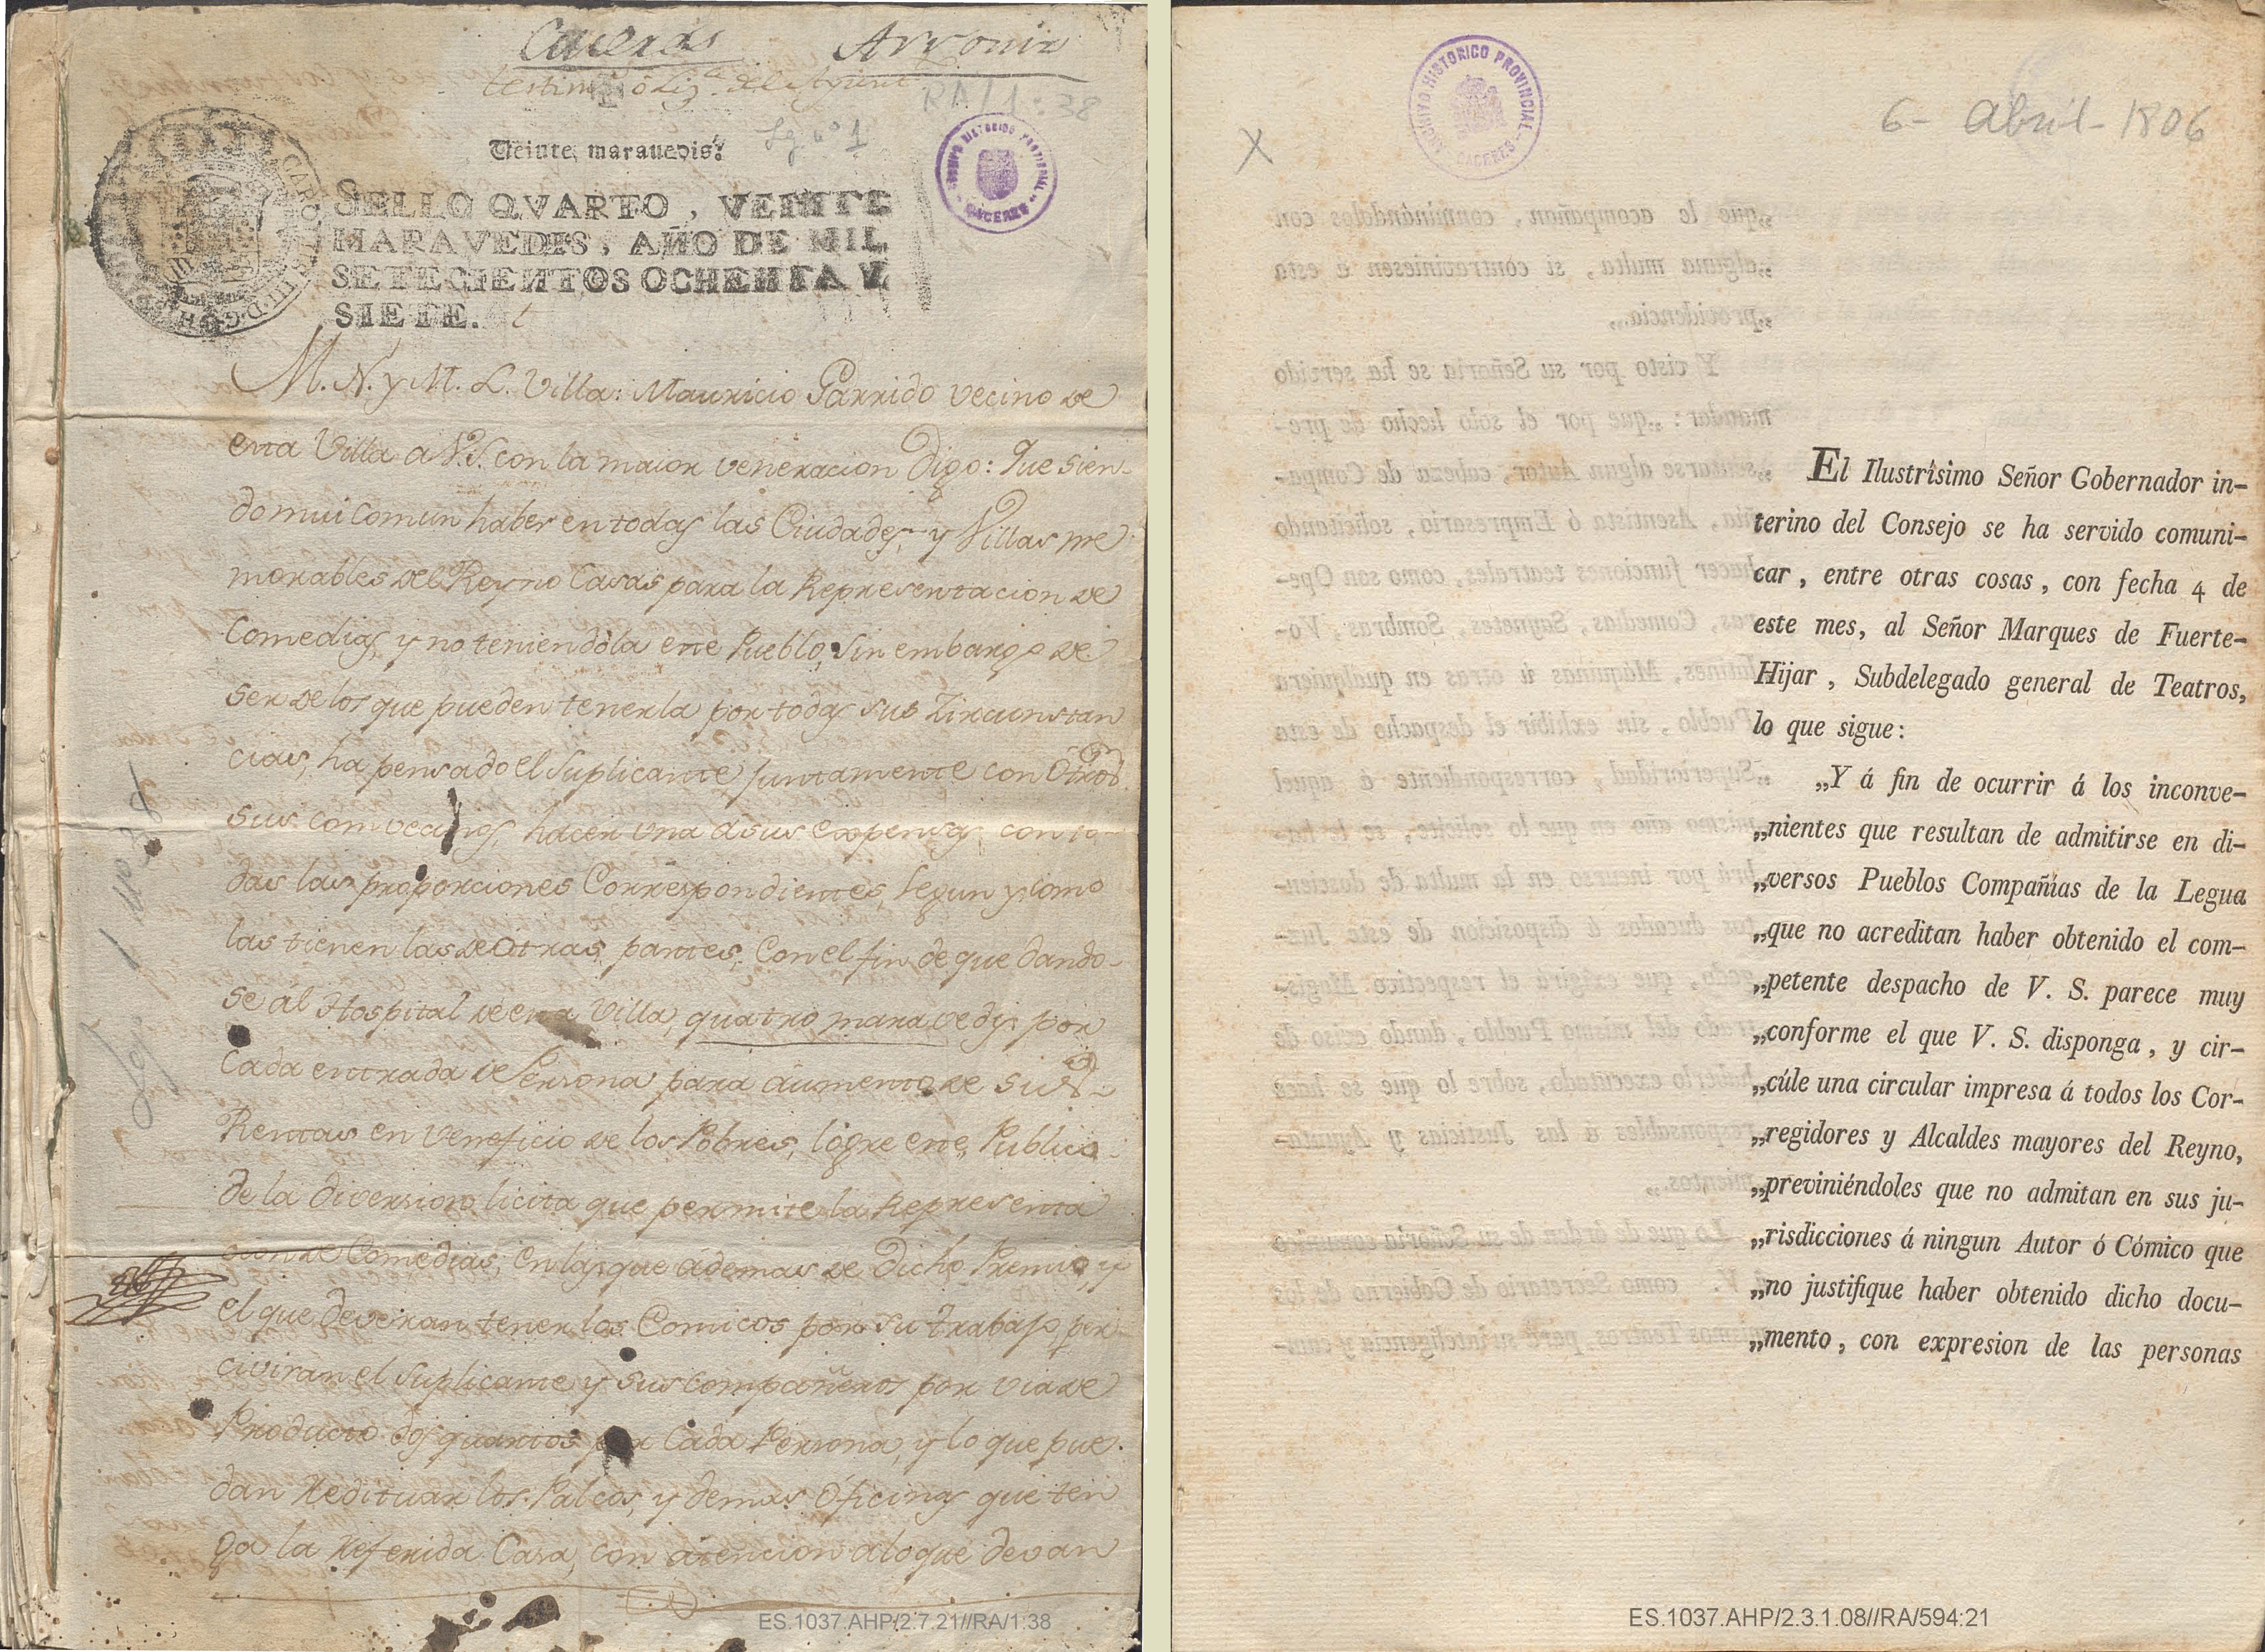 Caceres
Veinte maravedis.
SELLO QVARTO, VEINTE
MARAVEDIS, AÑO DE MIL
SETECIENTOS OCHENTA Y
SIETE.
M. N. y M. L. Villa: Mauricio Garrido vecino de
esta Villa a V.S. con la maior veneracion Digo: Que sien-
do mui comun haber en todas las Ciudades, y Villas me
morables del Reyno Casas para la Representacion de
Comedias, y no teniendola este Pueblo, sin embargo de
ser de los que pueden tenerla por todas sus Zircunstan
cias, ha pensado el Suplicante juntamente con Otros
sus convecinos, hacer una a sus expensas con to-
das las proporciones Correspondientes, segun y como
las tienen las de Otras partes, Con el fin de que dando-
se al Hospital de esta Villa, quatro maravedis por
Cada entrada de Persona para aumento de sus
Rentas en veneficio de los Pobres, logre este Publico
de la diversion licita que permite la Representa
cion de Comedias, en las que ademas de Dicho Premio, y
el que deveran tener los Comicos por su trabajo, per-
civiran el Suplicante y sus compañeros por via de
Producto dos quartos por Cada Persona, y lo que pue-
dan Redituar los Palcos, y demas Oficinas que ten
ga la Referida Casa, con atencion a lo que devan
ARCHIVO HISTORICO PROVINCIAL
CACERES
RA/1:38
Lg. nº 1
ES.1037.AHP/2.7.21//RA/1:38
ARCHIVO HISTORICO PROVINCIAL
CACERES
6 - Abril - 1806
El Ilustrísimo Señor Gobernador in-
terino del Consejo se ha servido comuni-
car, entre otras cosas, con fecha 4 de
este mes, al Señor Marques de Fuerte-
Hijar, Subdelegado general de Teatros,
lo que sigue:
„Y á fin de ocurrir á los inconve-
„nientes que resultan de admitirse en di-
„versos Pueblos Compañías de la Legua
„que no acreditan haber obtenido el com-
„petente despacho de V. S. parece muy
„conforme el que V. S. disponga, y cir-
„cúle una circular impresa á todos los Cor-
„regidores y Alcaldes mayores del Reyno,
„previniéndoles que no admitan en sus ju-
„risdicciones á ningun Autor ó Cómico que
„no justifique haber obtenido dicho docu-
„mento, con expresion de las personas
ES.1037.AHP/2.3.1.08//RA/594:21